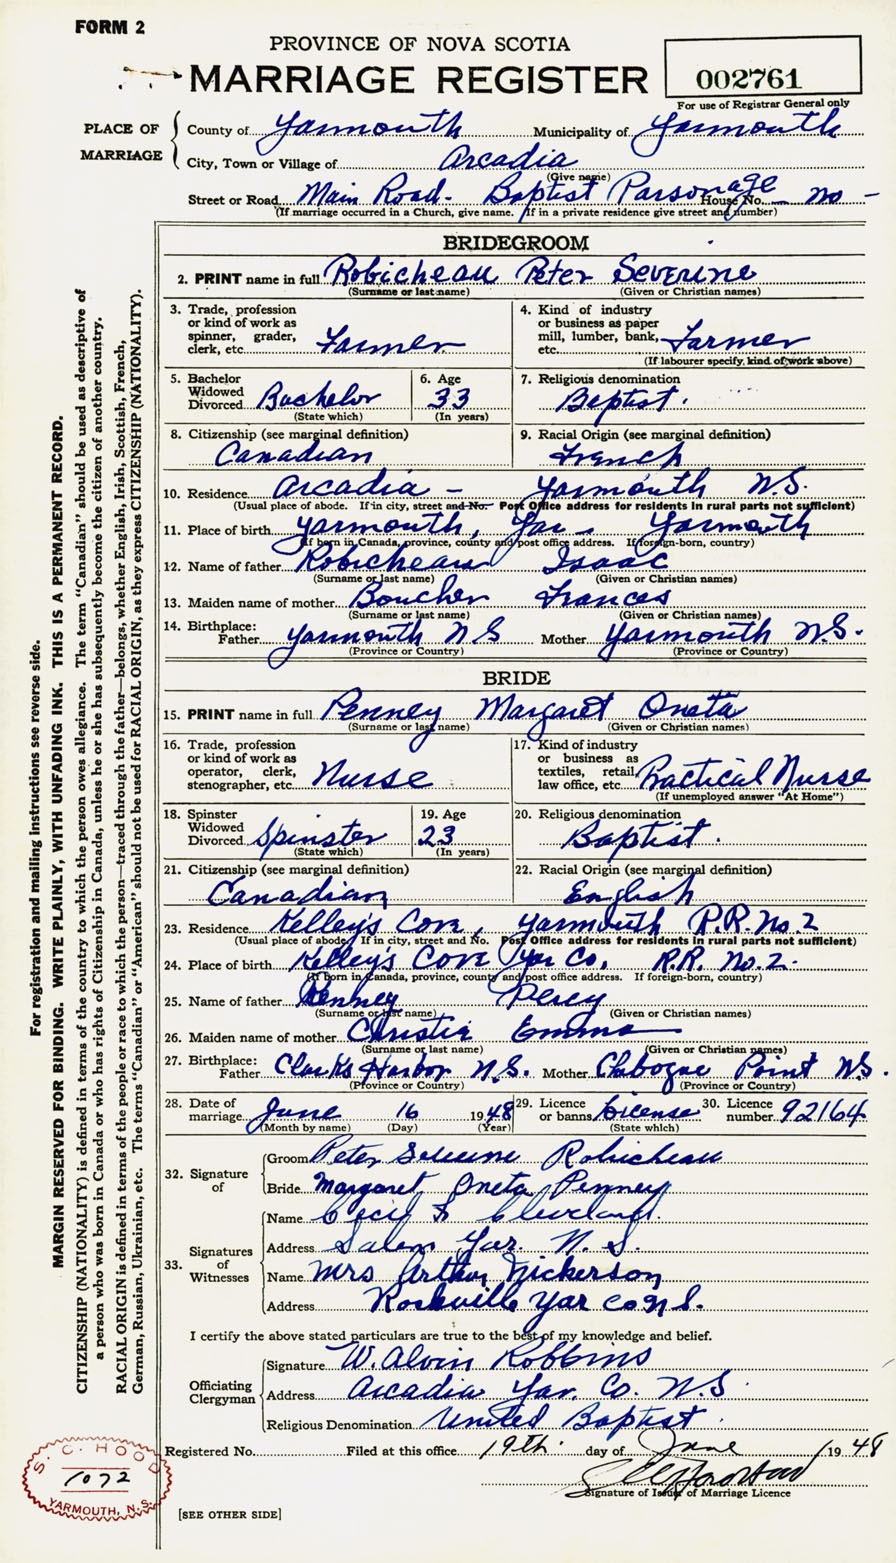 FORM 2
PROVINCE OF NOVA SCOTIA
MARRIAGE REGISTER
002761
For use of Registrar General only
PLACE OF MARRIAGE
County of Yarmouth Municipality of Yarmouth
City, Town or Village of Arcadia
(Give name)
Street or Road Main Road - Baptist Parsonage House No. - no -
(If marriage occurred in a Church, give name. If in a private residence give street and number)
BRIDEGROOM
2. PRINT name in full Robicheau Peter Severine
(Surname or last name) (Given or Christian names)
3. Trade, profession or kind of work as spinner, grader, clerk, etc. Farmer
4. Kind of industry or business as paper mill, lumber, bank, etc. Farmer
(If labourer specify, kind of work above)
5. Bachelor Widowed Divorced Bachelor
(State which)
6. Age 33
(In years)
7. Religious denomination
Baptist.
8. Citizenship (see marginal definition)
Canadian
9. Racial Origin (see marginal definition)
French
10. Residence Arcadia - Yarmouth N.S.
(Usual place of abode. If in city, street and No. Post Office address for residents in rural parts not sufficient)
11. Place of birth Yarmouth, Yar - Yarmouth
(If born in Canada, province, county and post office address. If foreign-born, country)
12. Name of father Robicheau Isaac
(Surname or last name) (Given or Christian names)
13. Maiden name of mother Boucher Frances
(Surname or last name) (Given or Christian names)
14. Birthplace: Father Yarmouth N.S Mother Yarmouth N.S.
(Province or Country) (Province or Country)
BRIDE
15. PRINT name in full Penney Margaret Oneta
(Surname or last name) (Given or Christian names)
16. Trade, profession or kind of work as operator, clerk, stenographer, etc. Nurse
17. Kind of industry or business as textiles, retail, law office, etc Practical Nurse
(If unemployed answer "At Home")
18. Spinster Widowed Divorced Spinster
(State which)
19. Age 23
(In years)
20. Religious denomination
Baptist.
21. Citizenship (see marginal definition)
Canadian
22. Racial Origin (see marginal definition)
English
23. Residence Kelley's Cove, Yarmouth R.R. No. 2
(Usual place of abode. If in city, street and No. Post Office address for residents in rural parts not sufficient)
24. Place of birth Kelley's Cove Yar Co. R.R. No. 2.
(If born in Canada, province, county and post office address. If foreign-born, country)
25. Name of father Penney Percy
(Surname or last name) (Given or Christian names)
26. Maiden name of mother Christie Emma
(Surname or last name) (Given or Christian names)
27. Birthplace: Father Clarks Harbor N.S. Mother Chebogue Point N.S.
(Province or Country) (Province or Country)
28. Date of marriage June 16 1948
(Month by name) (Day) (Year)
29. Licence or banns License
(State which)
30. Licence number 92164
32. Signature of
Groom Peter Severine Robicheau
Bride Margaret Oneta Penney
33. Signatures of Witnesses
Name Cecil F. Cleveland.
Address Salem Yar. N. S.
Name Mrs Arthur Nickerson
Address Rockville Yar Co N.S.
I certify the above stated particulars are true to the best of my knowledge and belief.
Officiating Clergyman
Signature W. Alvin Robbins
Address Arcadia Yar. Co. N.S.
Religious Denomination United Baptist.
Registered No. Filed at this office 19th. day of June 1948
Signature of Issuer of Marriage Licence
[SEE OTHER SIDE]
S. C. HOOD
1072
YARMOUTH, N.S.
For registration and mailing instructions see reverse side.
MARGIN RESERVED FOR BINDING. WRITE PLAINLY, WITH UNFADING INK. THIS IS A PERMANENT RECORD.
CITIZENSHIP (NATIONALITY) is defined in terms of the country to which the person owes allegiance. The term "Canadian" should be used as descriptive of
a person who was born in Canada or who has rights of Citizenship in Canada, unless he or she has subsequently become the citizen of another country.
RACIAL ORIGIN is defined in terms of the people or race to which the person—traced through the father—belongs, whether English, Irish, Scottish, French,
German, Russian, Ukrainian, etc. The terms "Canadian" or "American" should not be used for RACIAL ORIGIN, as they express CITIZENSHIP (NATIONALITY).